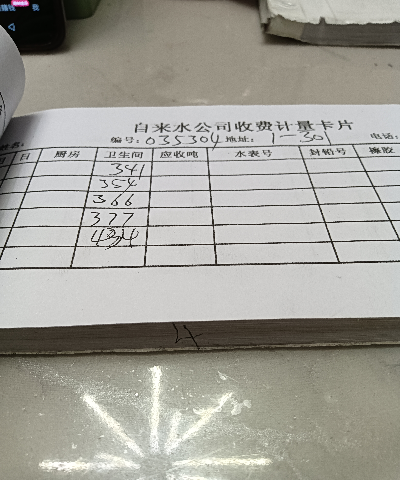 自来水公司收费计量卡片
编号：035304 地址：1-301 电话：
日 厨房 卫生间 应收吨 水表号 封铅号 橡胶
341
354
366
377
4